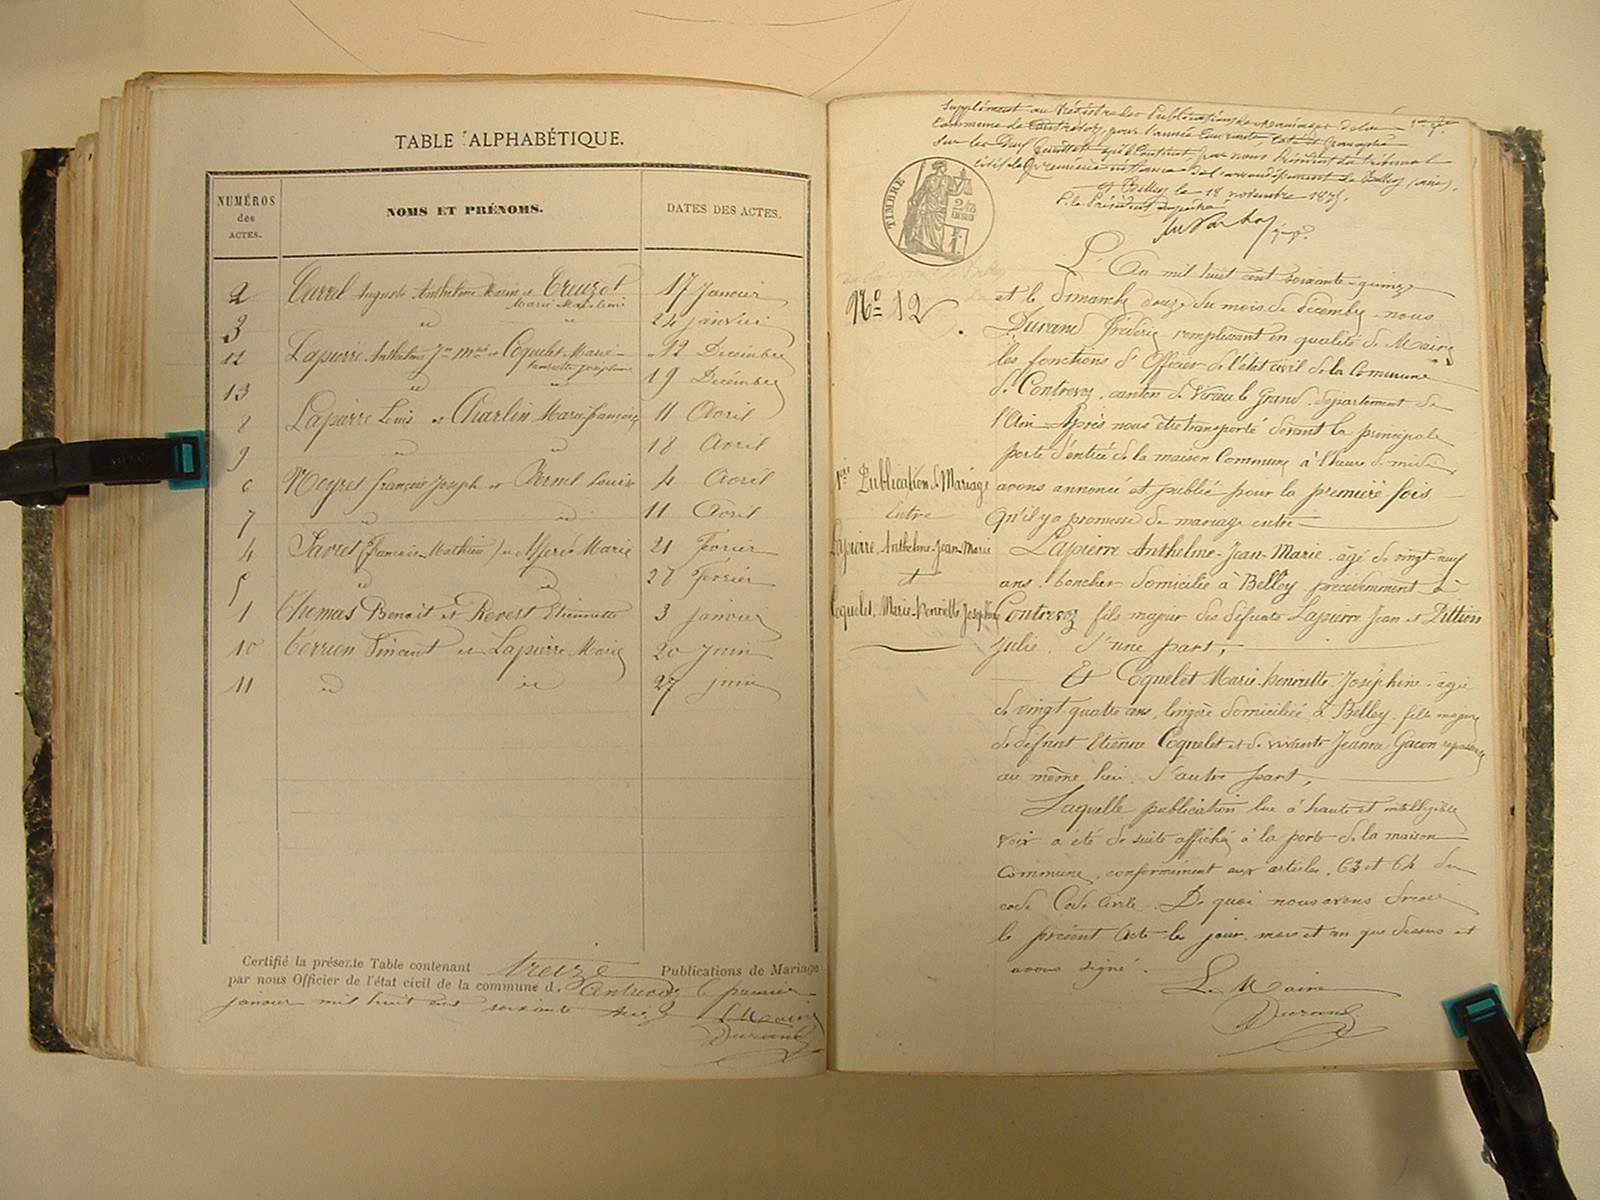 TABLE ALPHABÉTIQUE.
NUMÉROS des ACTES.
NOMS ET PRÉNOMS.
DATES DES ACTES.
2 Auguste Anthelme Marie et 17 Janvier
3 " " 24 janvier
12 Lapierre Anthelme Jn mrie et Coquelet Marie henriette Josephine 12 Décembre
13 " " 19 Décembre
8 Lapierre Louis et Charlin Marie françoise 11 Avril
9 " " 18 Avril
6 Neyret françois Joseph et Louise 4 Avril
7 " " 11 Avril
4 (françois Mathieu) et Marie 21 Février
5 " " 28 Février
1 Thomas Benoit et Revest Etiennette 3 janvier
10 Terrien Vincent et Lapierre Marie 20 Juin
11 " " 27 juin
Certifié la présente Table contenant treize Publications de Mariage
par nous Officier de l'état civil de la commune d. Contrevoz le premier
janvier mil huit cent soixante seize Le Maire
Durand
Supplément au Régistre des Publications de mariages de la
Commune de Contrevoz, pour l'année Courante, Coté et Paraphé
sur les Deux feuillets qu'il Contient, par nous Président du Tribunal
Civil de première instance de l'arrondissement de Belley (ain).
à Belley le 18 novembre 1875.
P. le Président empêché
TIMBRE
L'An mil huit cent soixante-quinze
Nº 12.
et le Dimanche douze du mois de décembre nous
Durand Frédéric remplissant en qualité de Maire
les fonctions d'Officier de l'état civil de la Commune
de Contrevoz, canton de Virieu le Grand, département de
l'Ain Après nous être transporté devant la principale
porte d'entrée de la maison Commune à l'heure de midi
avons annoncé et publié pour la première fois
Qu'il y a promesse de mariage entre
Publication de Mariage
Entre
Lapierre, Anthelme-Jean-Marie
et
Coquelet, Marie-Henriette Josephine
Lapierre Anthelme-Jean-Marie âgé de vingt-neuf
ans, boucher domicilié à Belley précédemment à
Contrevoz fils majeur des défunts Lapierre Jean et Pittion
Julie. D'une part,
Et Coquelet Marie-henriette-Joséphine âgée
de vingt-quatre ans, lingère domiciliée à Belley, fille majeure
de défunt Etienne Coquelet et de vivante Jeanne Gacon
au même lieu. D'autre part,
Laquelle publication lue à haute et intelligible
voix a été de suite affichée à la porte de la maison
Commune, conformément aux articles, 63 et 64 du
code Code Civil. De quoi nous avons dressé
le présent Acte les jour, mois et an que dessus et
avons signé.
Le Maire
Durand